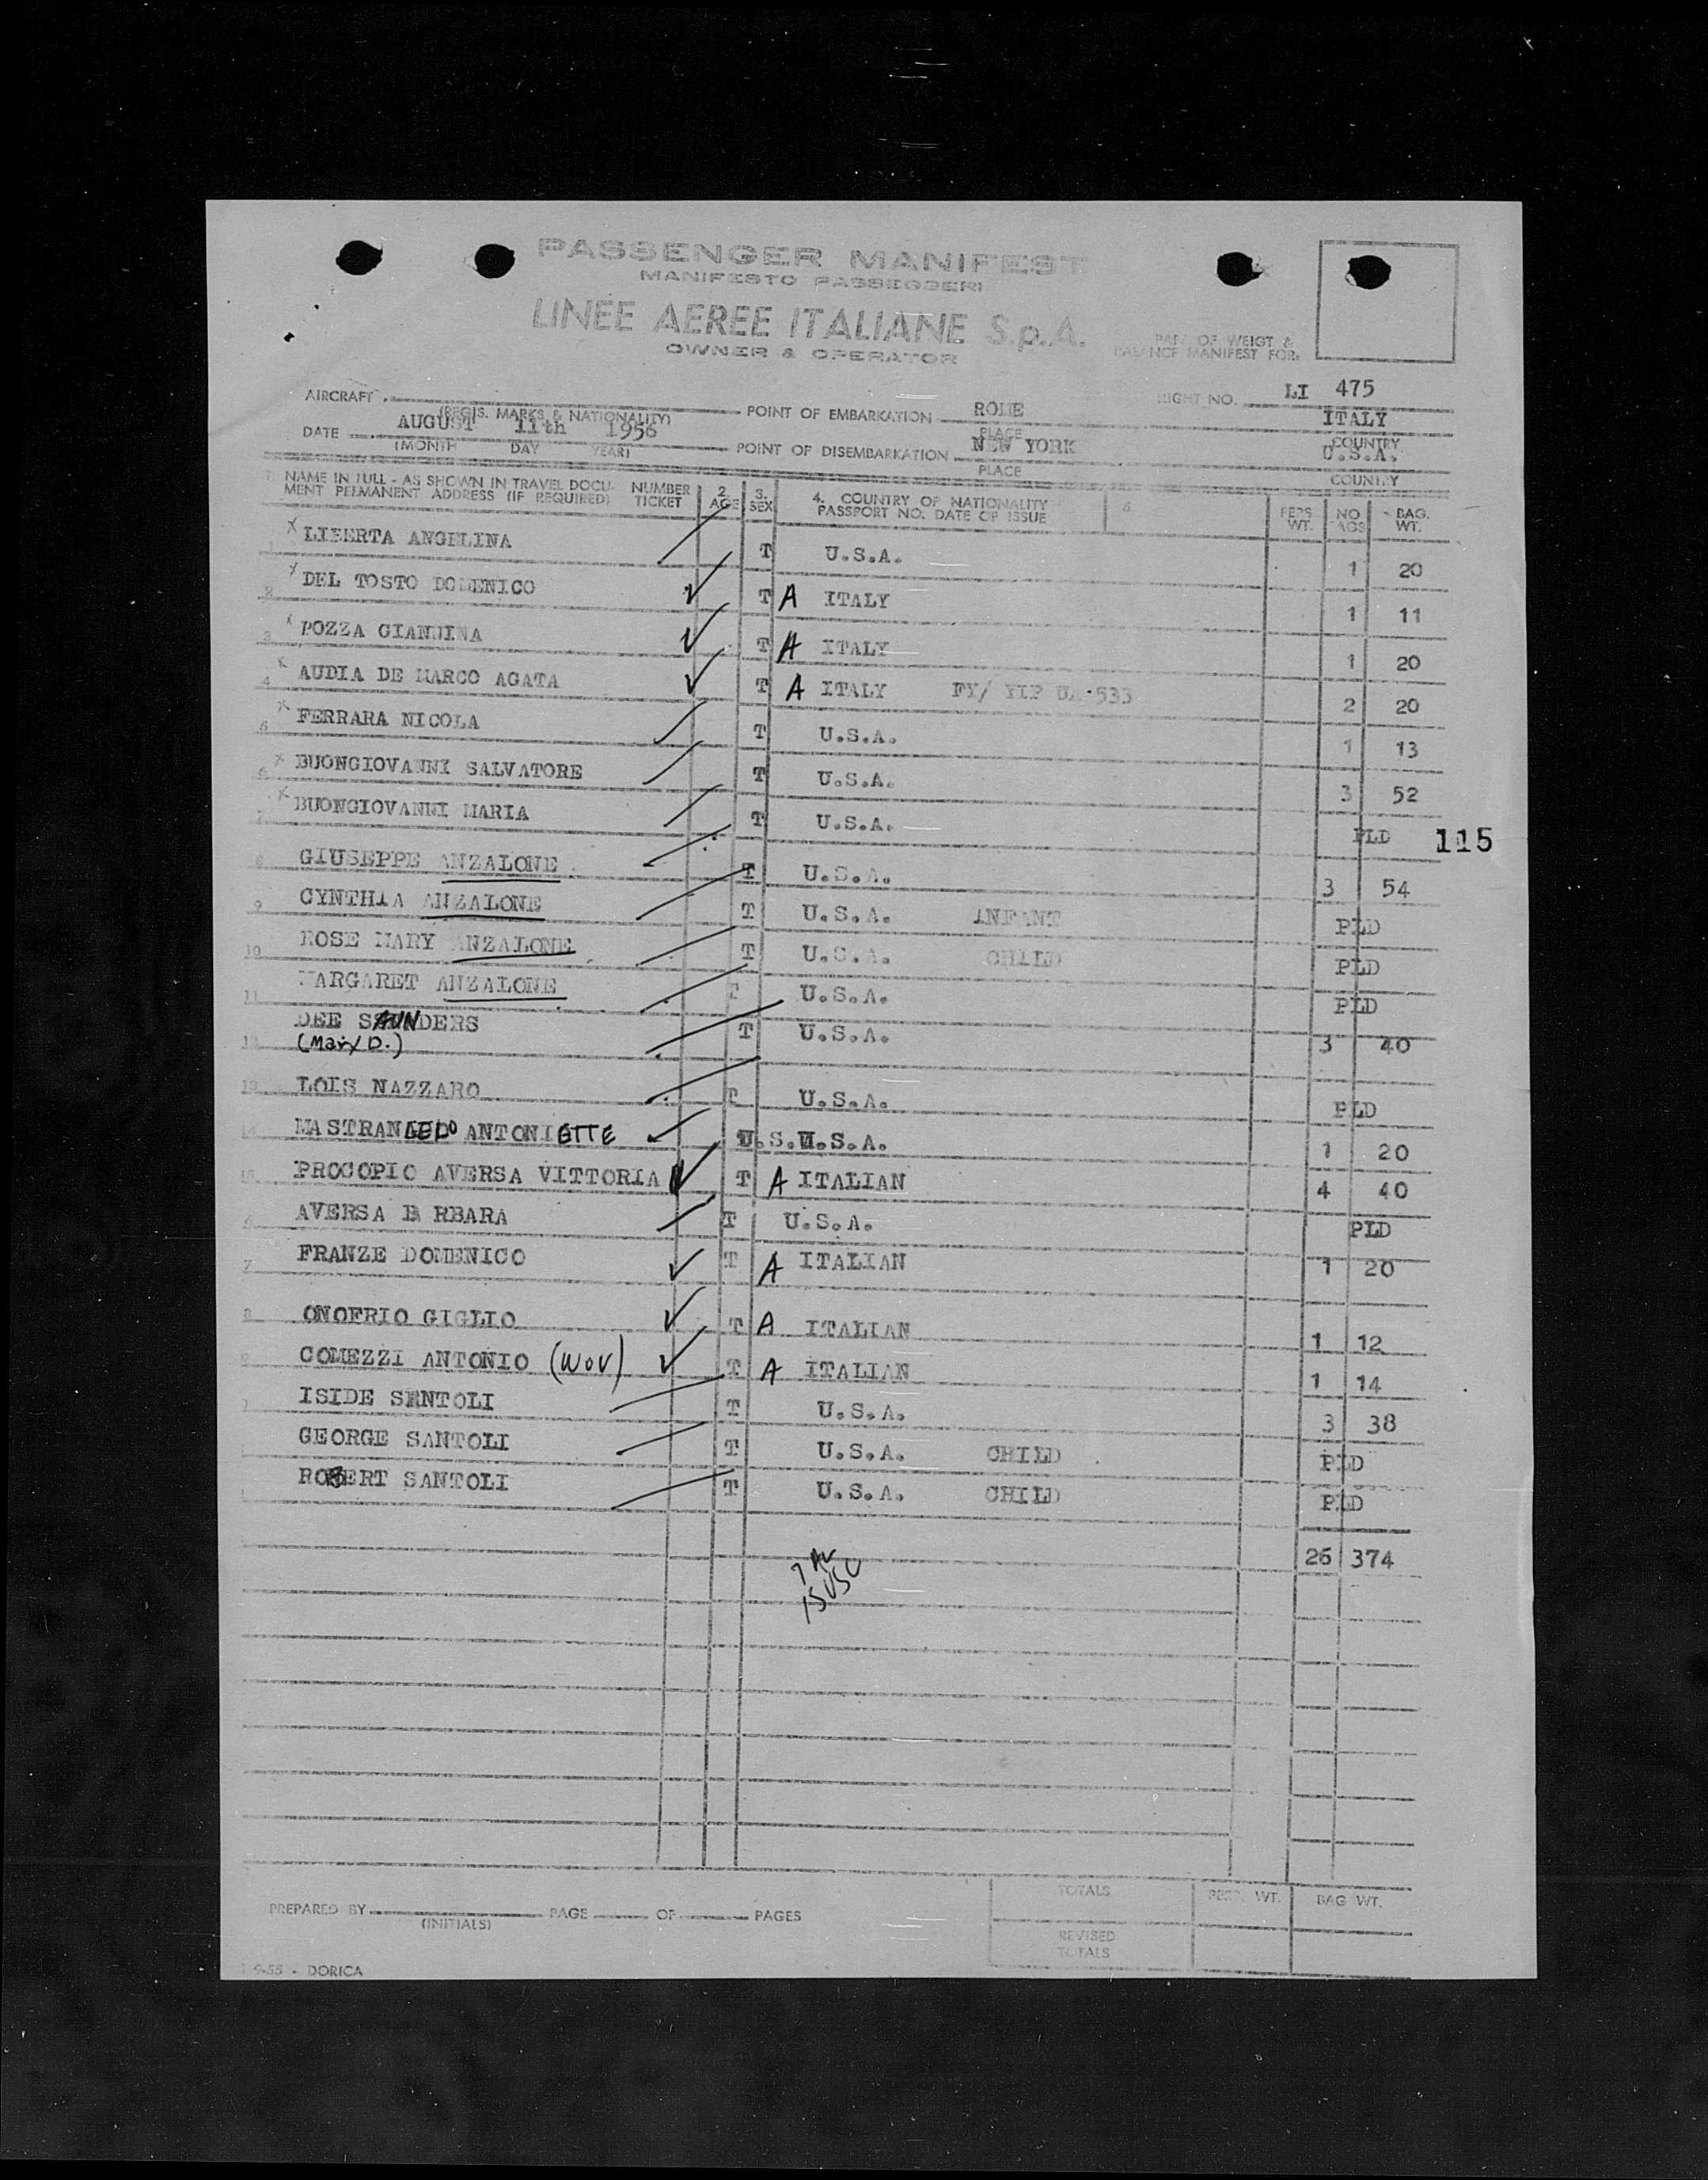 PASSENGER MANIFEST
MANIFESTO PASSEGGERI
LINEE AEREE ITALIANE S.p.A.
OWNER & OPERATOR
PART OF WEIGT &
BALANCE MANIFEST FOR:
AIRCRAFT POINT OF EMBARKATION ROME FLIGHT NO. LI 475
(REGIS. MARKS & NATIONALITY) PLACE ITALY
DATE AUGUST 11th 1956 POINT OF DISEMBARKATION NEW YORK COUNTRY U.S.A.
(MONTH DAY YEAR) PLACE COUNTRY
1. NAME IN FULL - AS SHOWN IN TRAVEL DOCU- NUMBER 2. 3. 4. COUNTRY OF NATIONALITY 5. PERS NO BAG.
MENT PERMANENT ADDRESS (IF REQUIRED) TICKET AGE SEX PASSPORT NO. DATE OF ISSUE WT. BAGS WT.
1 X LIBERTA ANGELINA T U.S.A. 1 20
2 X DEL TOSTO DOMENICO T A ITALY 1 11
3 X POZZA GIANNINA T A ITALY 1 20
4 X AUDIA DE MARCO AGATA T A ITALY 533 2 20
5 X FERRARA NICOLA T U.S.A. 1 13
6 X BUONGIOVANNI SALVATORE T U.S.A. 3 52
7 X BUONGIOVANNI MARIA T U.S.A. PLD
115
8 GIUSEPPE ANZALONE T U.S.A. 3 54
9 CYNTHIA ANZALONE T U.S.A. INFANT PLD
10 ROSE MARY ANZALONE T U.S.A. CHILD PLD
11 MARGARET ANZALONE T U.S.A. PLD
12 DEE SAUNDERS T U.S.A. 3 40
(Mary D.)
13 LOIS NAZZARO T U.S.A. PLD
14 MASTRANGELO ANTONIETTE U.S.U.S.A. 1 20
15 PROCOPIO AVERSA VITTORIA T A ITALIAN 4 40
6 AVERSA B RBARA T U.S.A. PLD
7 FRANZE DOMENICO T A ITALIAN 1 20
8 ONOFRIO GIGLIO T A ITALIAN 1 12
9 COMEZZI ANTONIO (WOV) T A ITALIAN 1 14
ISIDE SANTOLI T U.S.A. 3 38
GEORGE SANTOLI T U.S.A. CHILD PLD
ROBERT SANTOLI T U.S.A. CHILD PLD
26 374
15 USC
TOTALS PERS. WT. BAG WT.
PREPARED BY PAGE OF PAGES
(INITIALS)
REVISED
TOTALS
9-55 - DORICA